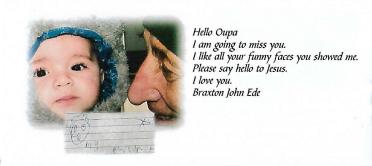 Hello Oupa
I am going to miss you.
I like all your funny faces you showed me.
Please say hello to Jesus.
I love you.
Braxton John Ede